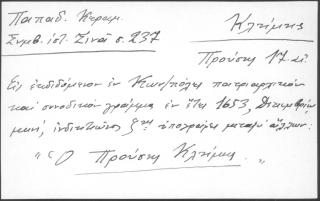 Παπαδ. Κεραμ.
Κλήμης
Συμβ. ἱστ. Σινᾶ σ. 237
Προύσης 17. αἰ.
Εἰς ἐκδιδόμενον ἐν Κων/πόλει πατριαρχικὸν
καὶ συνοδικὸν γράμμα ἐν ἔτει 1653, Δεκεμβρίῳ
μηνί, ἰνδικτιῶνος ζης ὑπογράφει μεταξὺ ἄλλων:
"Ὁ Προύσης Κλήμης„